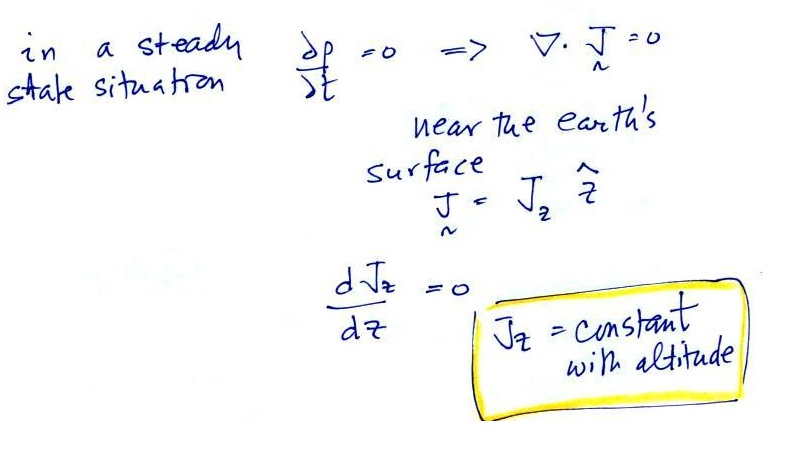 in a steady ∂ρ/∂t =0 => ∇· J̰ =0
state situation
near the earth's
surface
J̰ = J_z ẑ
dJ_z/dz =0
J_z = constant
with altitude